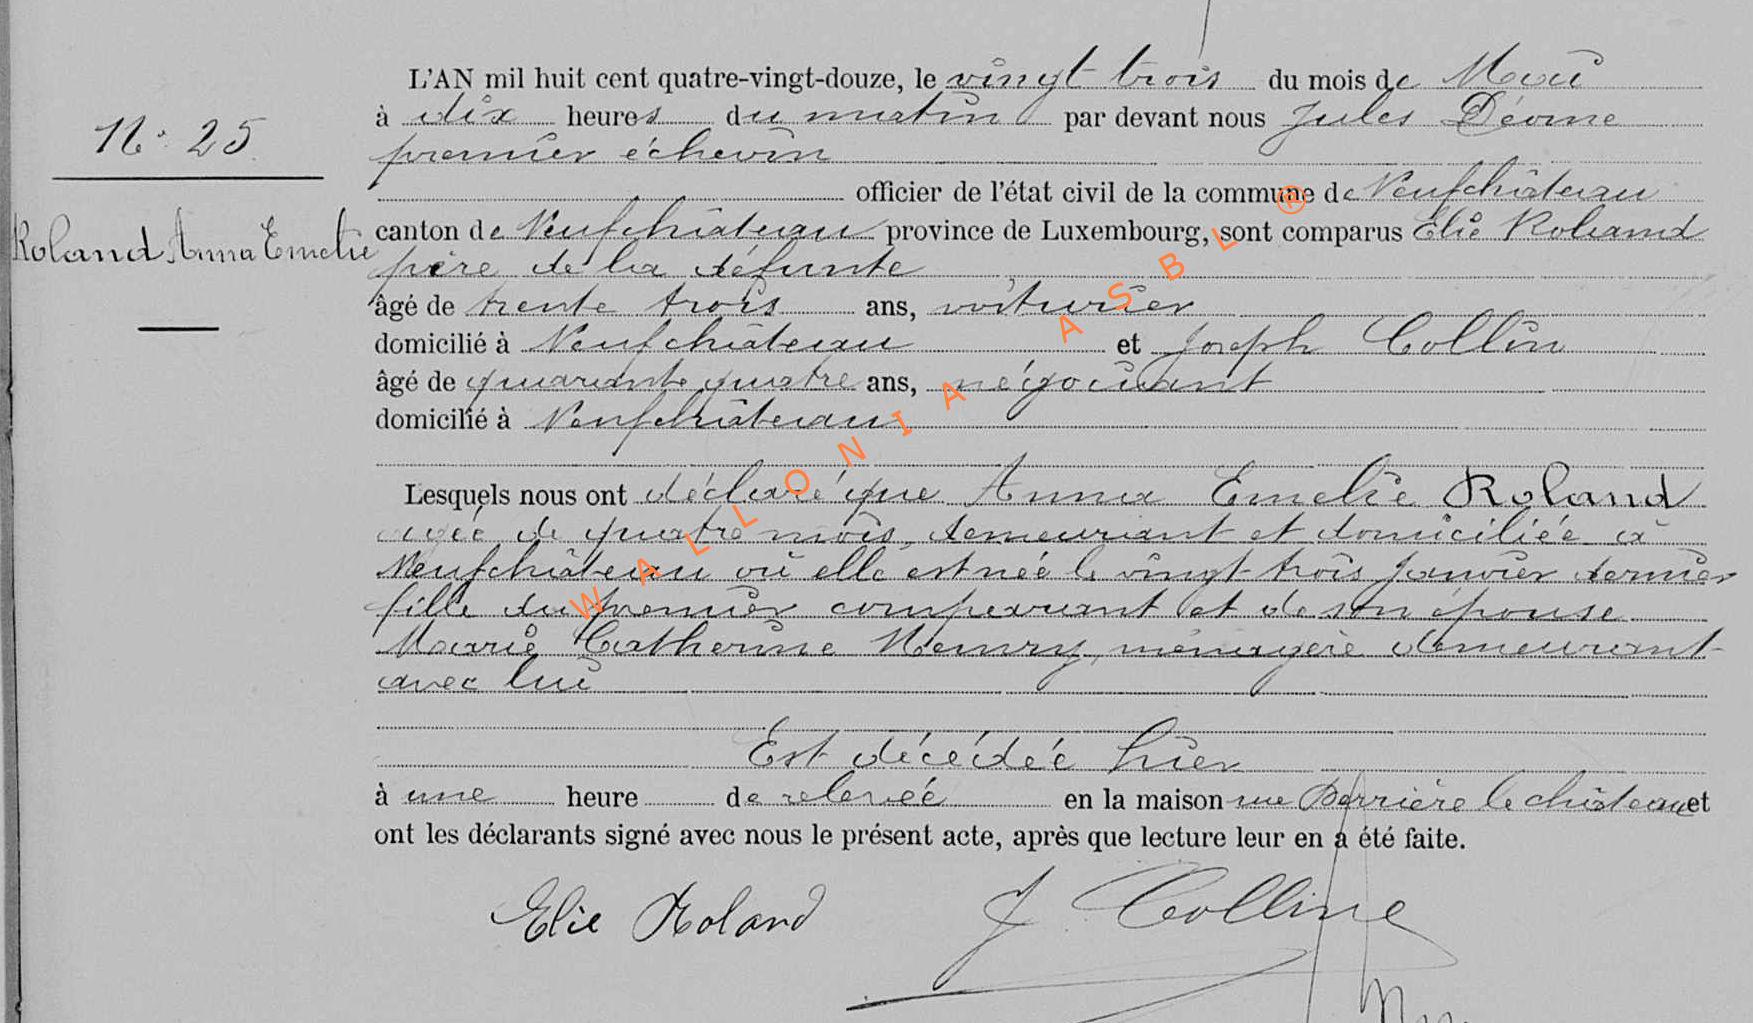 L'AN mil huit cent quatre-vingt-douze, le vingt trois du mois de Mai
à dix heures du matin par devant nous Jules
N° 25
premier échevin
officier de l'état civil de la commune de Neufchâteau
Roland Anna Emelie
canton de Neufchâteau province de Luxembourg, sont comparus Elie Roland
père de la défunte
âgé de trente trois ans, voiturier
domicilié à Neufchâteau et Joseph Collin
âgé de quarante quatre ans, négociant
domicilié à Neufchâteau
Lesquels nous ont déclaré que Anna Emelie Roland
agée de quatre mois, demeurant et domiciliée à
Neufchâteau où elle est née le vingt trois Janvier dernier
fille du premier comparant et de son épouse
Marie Catherine Henry, ménagère demeurant
avec lui
Est décédée hier
à une heure de relevée en la maison rue Derrière le château et
ont les déclarants signé avec nous le présent acte, après que lecture leur en a été faite.
Elie Roland J. Colline
WALLONIA ASBL ®